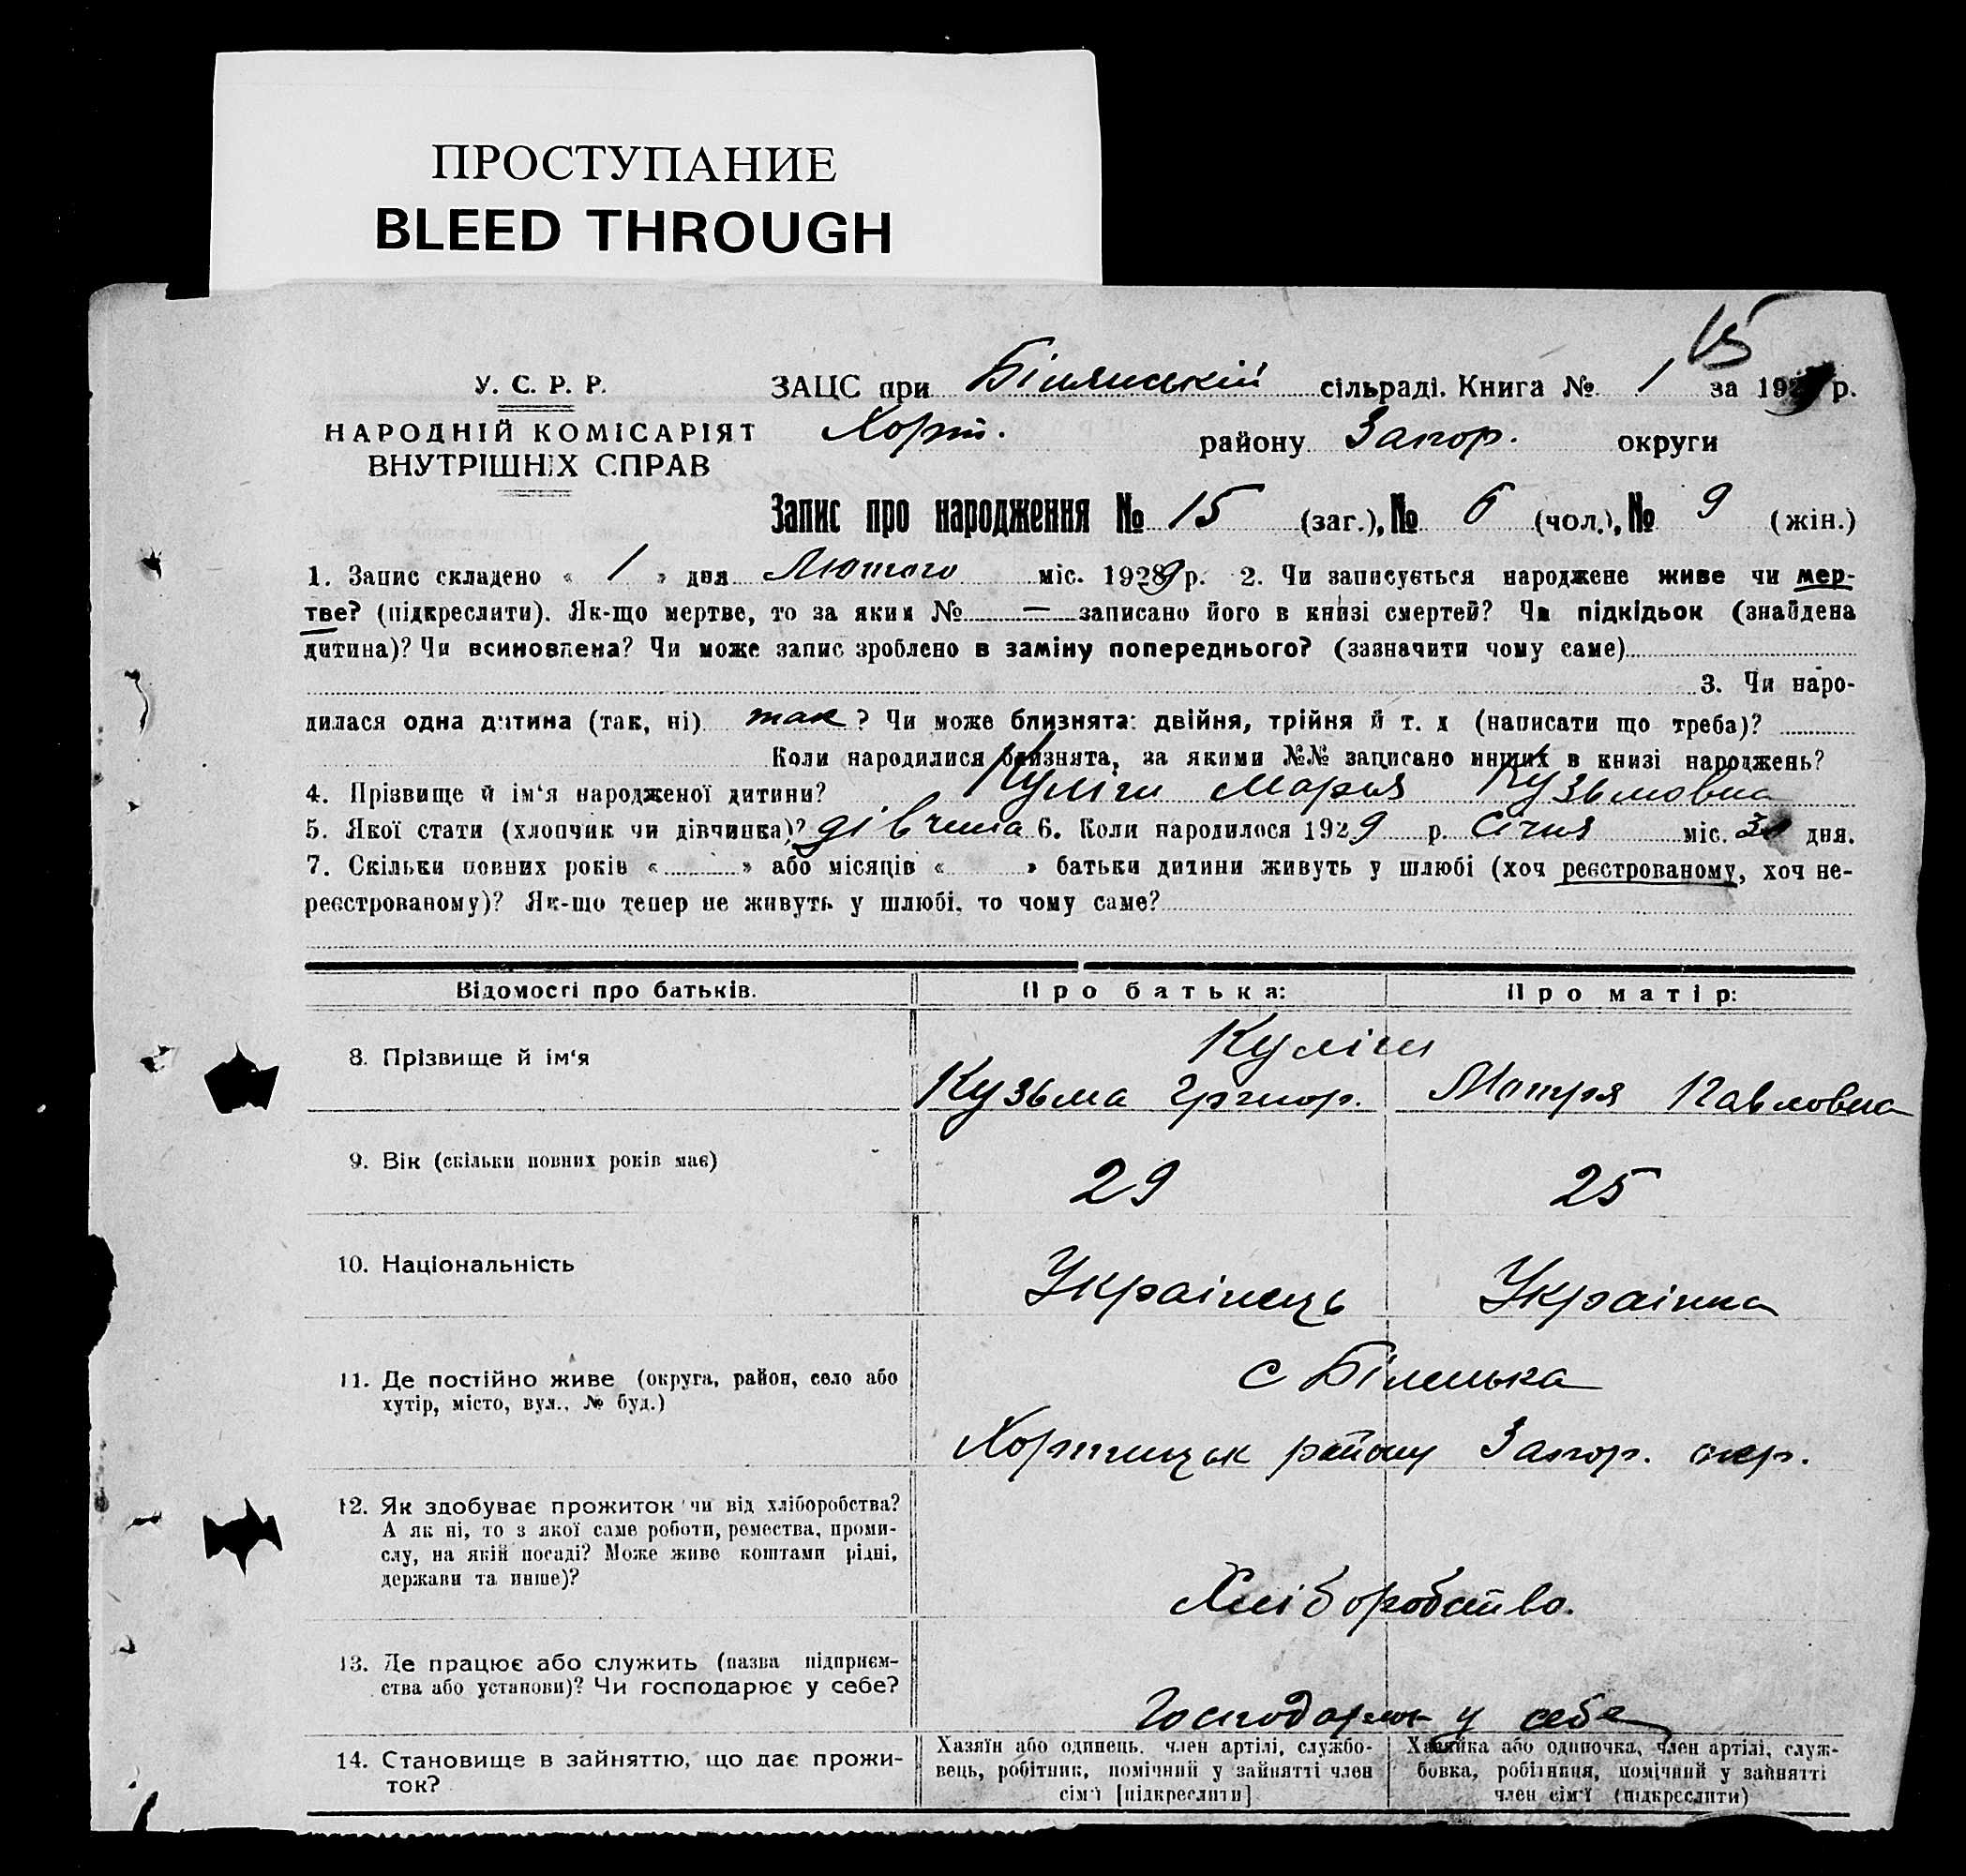 ПРОСТУПАНИЕ
BLEED THROUGH
15
У. С. Р. Р.
НАРОДНІЙ КОМІСАРІЯТ
ВНУТРІШНІХ СПРАВ
ЗАЦС при Білянській сільраді. Книга № 1 за 1929 р.
Хорт. району Запор. округи
Запис про народження № 15 (заг.), № 6 (чол.), № 9 (жін.)
1. Запис складено « 1 » дня Лютого міс. 1929 р. 2. Чи записується народжене живе чи мер-
тве? (підкреслити). Як-що мертве, то за яким № — записано його в книзі смертей? Чи підкідьок (знайдена
дитина)? Чи всиновлена? Чи може запис зроблено в заміну попереднього? (зазначити чому саме)
3. Чи наро-
дилася одна дитина (так, ні) так ? Чи може близнята: двійня, трійня й т. д (написати що треба)?
Коли народилися близнята, за якими №№ записано инших в книзі народжень?
4. Прізвище й ім‘я народженої дитини? Куліш Марія Кузьмовна
5. Якої стати (хлопчик чи дівчинка)? дівчина 6. Коли народилося 1929 р. Січня міс. дня.
7. Скільки повних років « » або місяців « » батьки дитини живуть у шлюбі (хоч реєстрованому, хоч не-
реєстрованому)? Як-що тепер не живуть у шлюбі, то чому саме?
Відомості про батьків. Про батька: Про матір:
8. Прізвище й ім‘я Куліш
Кузьма Григор. Мотря Павловна
9. Вік (скільки повних років має) 29 25
10. Національність Українець Українка
11. Де постійно живе (округа, район, село або
хутір, місто, вул., № буд.)
с Біленька
Хортицьк району Запор. окр.
12. Як здобуває прожиток чи від хліборобства?
А як ні, то з якої саме роботи, ремества, проми-
слу, на якій посаді? Може живе коштами рідні,
держави та инше)?
Хліборобство.
13. Де працює або служить (назва підприєм-
ства або установи)? Чи господарює у себе?
Господарює у себе
14. Становище в зайняттю, що дає прожи-
ток?
Хазяїн або одинець, член артілі, службо-
вець, робітник, помічний у зайнятті член
сім‘ї [підкреслити]
Хазяйка або одиночка, член артілі, служ-
бовка, робітниця, помічний у зайнятті
член сім‘ї (підкреслити)